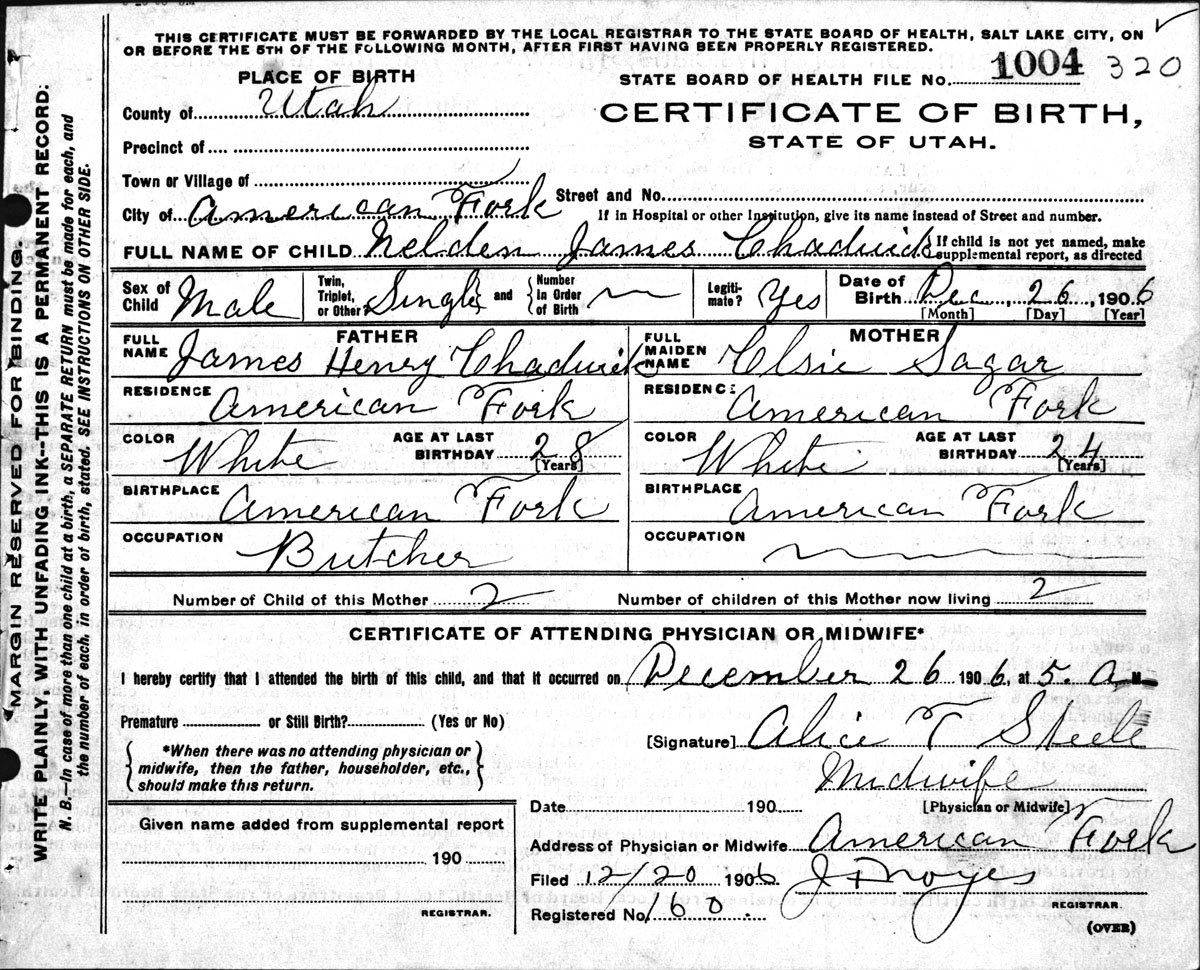 THIS CERTIFICATE MUST BE FORWARDED BY THE LOCAL REGISTRAR TO THE STATE BOARD OF HEALTH, SALT LAKE CITY, ON
OR BEFORE THE 5TH OF THE FOLLOWING MONTH, AFTER FIRST HAVING BEEN PROPERLY REGISTERED.
PLACE OF BIRTH
STATE BOARD OF HEALTH FILE No. 1004 320
County of Utah
CERTIFICATE OF BIRTH,
STATE OF UTAH.
Precinct of
Town or Village of
Street and No.
City of American Fork
If in Hospital or other Institution, give its name instead of Street and number.
FULL NAME OF CHILD Nelden James Chadwick { If child is not yet named, make
supplemental report, as directed
Sex of Child Male
Twin, Triplet, or Other Single } and { Number in Order of Birth
Legitimate? Yes
Date of Birth Dec 26, 1906
[Month] [Day] [Year]
FATHER
FULL NAME James Henry Chadwick
MOTHER
FULL MAIDEN NAME Elsie Sagar
RESIDENCE American Fork
RESIDENCE American Fork
COLOR White AGE AT LAST BIRTHDAY 28 [Years]
COLOR White AGE AT LAST BIRTHDAY 24 [Years]
BIRTHPLACE American Fork
BIRTHPLACE American Fork
OCCUPATION Butcher
OCCUPATION
Number of Child of this Mother 2 Number of children of this Mother now living 2
CERTIFICATE OF ATTENDING PHYSICIAN OR MIDWIFE*
I hereby certify that I attended the birth of this child, and that it occurred on December 26 1906, at 5. A M
Premature or Still Birth? (Yes or No)
{ *When there was no attending physician or
midwife, then the father, householder, etc.,
should make this return. }
[Signature] Alice T Steele
Midwife
[Physician or Midwife]
Given name added from supplemental report
190
REGISTRAR.
Date 190
Address of Physician or Midwife American Fork
Filed 12/20 1906 J F Noyes
REGISTRAR.
Registered No. 60.
(OVER)
MARGIN RESERVED FOR BINDING.
WRITE PLAINLY WITH UNFADING INK--THIS IS A PERMANENT RECORD:
N. B.—In case of more than one child at a birth, a SEPARATE RETURN must be made for each, and
the number of each, in order of birth, stated. SEE INSTRUCTIONS ON OTHER SIDE.